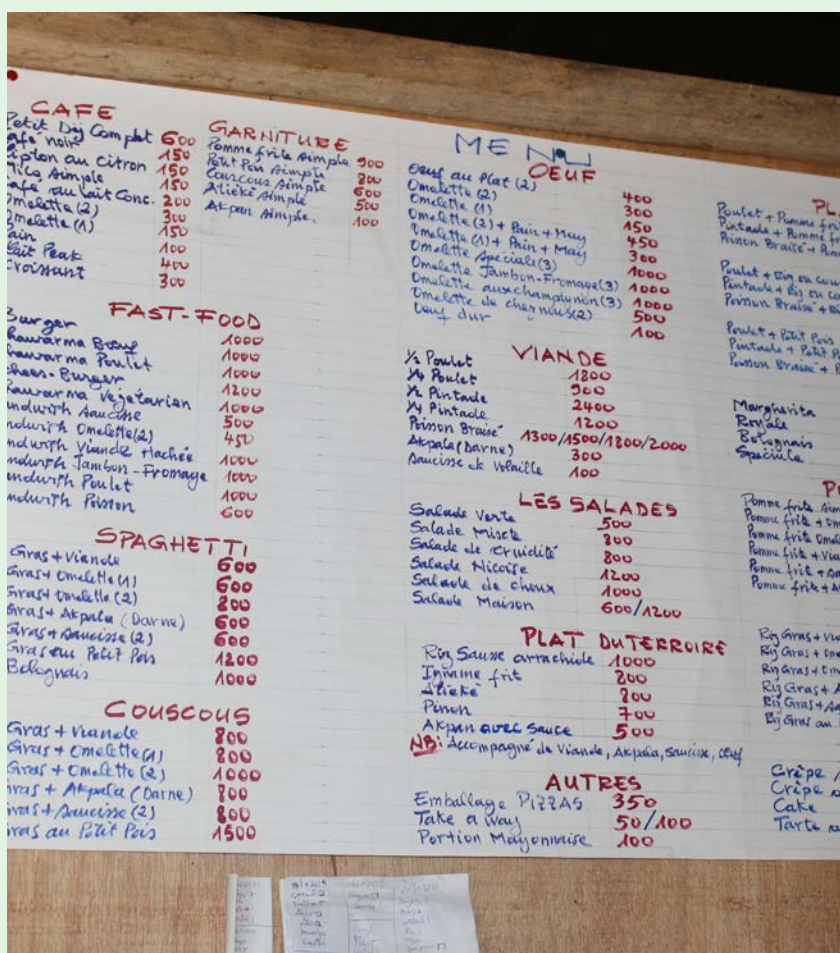 CAFE
Petit Dej Complet 600
Café noir 150
Lipton au citron 150
Mico Simple 150
Café au lait Conc. 200
Omelette (2) 300
Omelette (1) 150
Pain 100
Lait Peak 400
Croissant 300
GARNITURE
Pomme frite Simple 900
Petit Pois Simple 800
Couscous Simple 600
Atiéké Simple 500
Akpan Simple. 100
FAST-FOOD
Burger 1000
Shawarma Boeuf 1000
hawarma Poulet 1000
hees-Burger 1200
hawarma Vegetarian 1000
ndwish Saucisse 500
ndwish Omelette(2) 450
ndwish Viande Hachée 1000
ndwish Jambon-Fromage 1000
ndwish Poulet 1000
ndwish Poisson 600
SPAGHETTI
Gras + Viande 600
Gras + Omelette (1) 600
Gras + Omelette (2) 800
Gras + Akpala (Darne) 600
Gras + Saucisse (2) 600
Gras au Petit Pois 1200
Bolognais 1000
COUSCOUS
Gras + Viande 800
Gras + Omelette (1) 800
Gras + Omelette (2) 1000
ras + Akpala (Darne) 800
ras + Saucisse (2) 800
ras au Petit Pois 1500
MENU
OEUF
Oeuf au Plat (2) 400
Omelette (2) 300
Omelette (1) 150
Omelette (2) + Pain + May 450
Omelette (1) + Pain + May 300
Omelette Spéciale (3) 1000
Omelette Jambon-Fromage (3) 1000
Omelette aux champignon (3) 1000
Omelette de chez nous (2) 500
Oeuf dur 100
VIANDE
½ Poulet 1800
¼ Poulet 900
½ Pintade 2400
¼ Pintade 1200
Poisson Braisé 1300/1500/1800/2000
Akpala (Darne) 300
Saucisse de Volaille 100
LES SALADES
Salade Verte 500
Salade Mixte 800
Salade de Cruidité 800
Salade Nicoise 1200
Salade de Choux 1000
Salade Maison 600/1200
PLAT DU TERROIRE
Riz Sausse arrachide 1000
Igname frit 800
Atieké 800
Pinon 700
Akpan avec Sauce 500
NB: Accompagné de Viande, Akpala, Saucisse, Oeuf
AUTRES
Emballage PIZZAS 350
Take a way 50/100
Portion Mayonnaise 100
PL
Poulet + Pomme frit
Pintade + Pomme f
Poisson Braisé + Pom
Poulet + Riz ou cou
Pintade + Riz ou c
Poisson Braisé +
Poulet + Petit Pois
Pintade + Petit P
Poisson Braisé + P
Margherita
Royale
Bolognais
Spéciale
P
Pomme frite Sim
Pomme frite + Om
Pomme frite Omele
Pomme frite + Via
Pomme frit +
Pomme frite + A
Riz Gras + Via
Riz Gras + Ome
Riz Gras + Om
Riz Gras +
Riz Gras +
Riz Gras au
Crêpe
Crêpe
Cake
Tarte